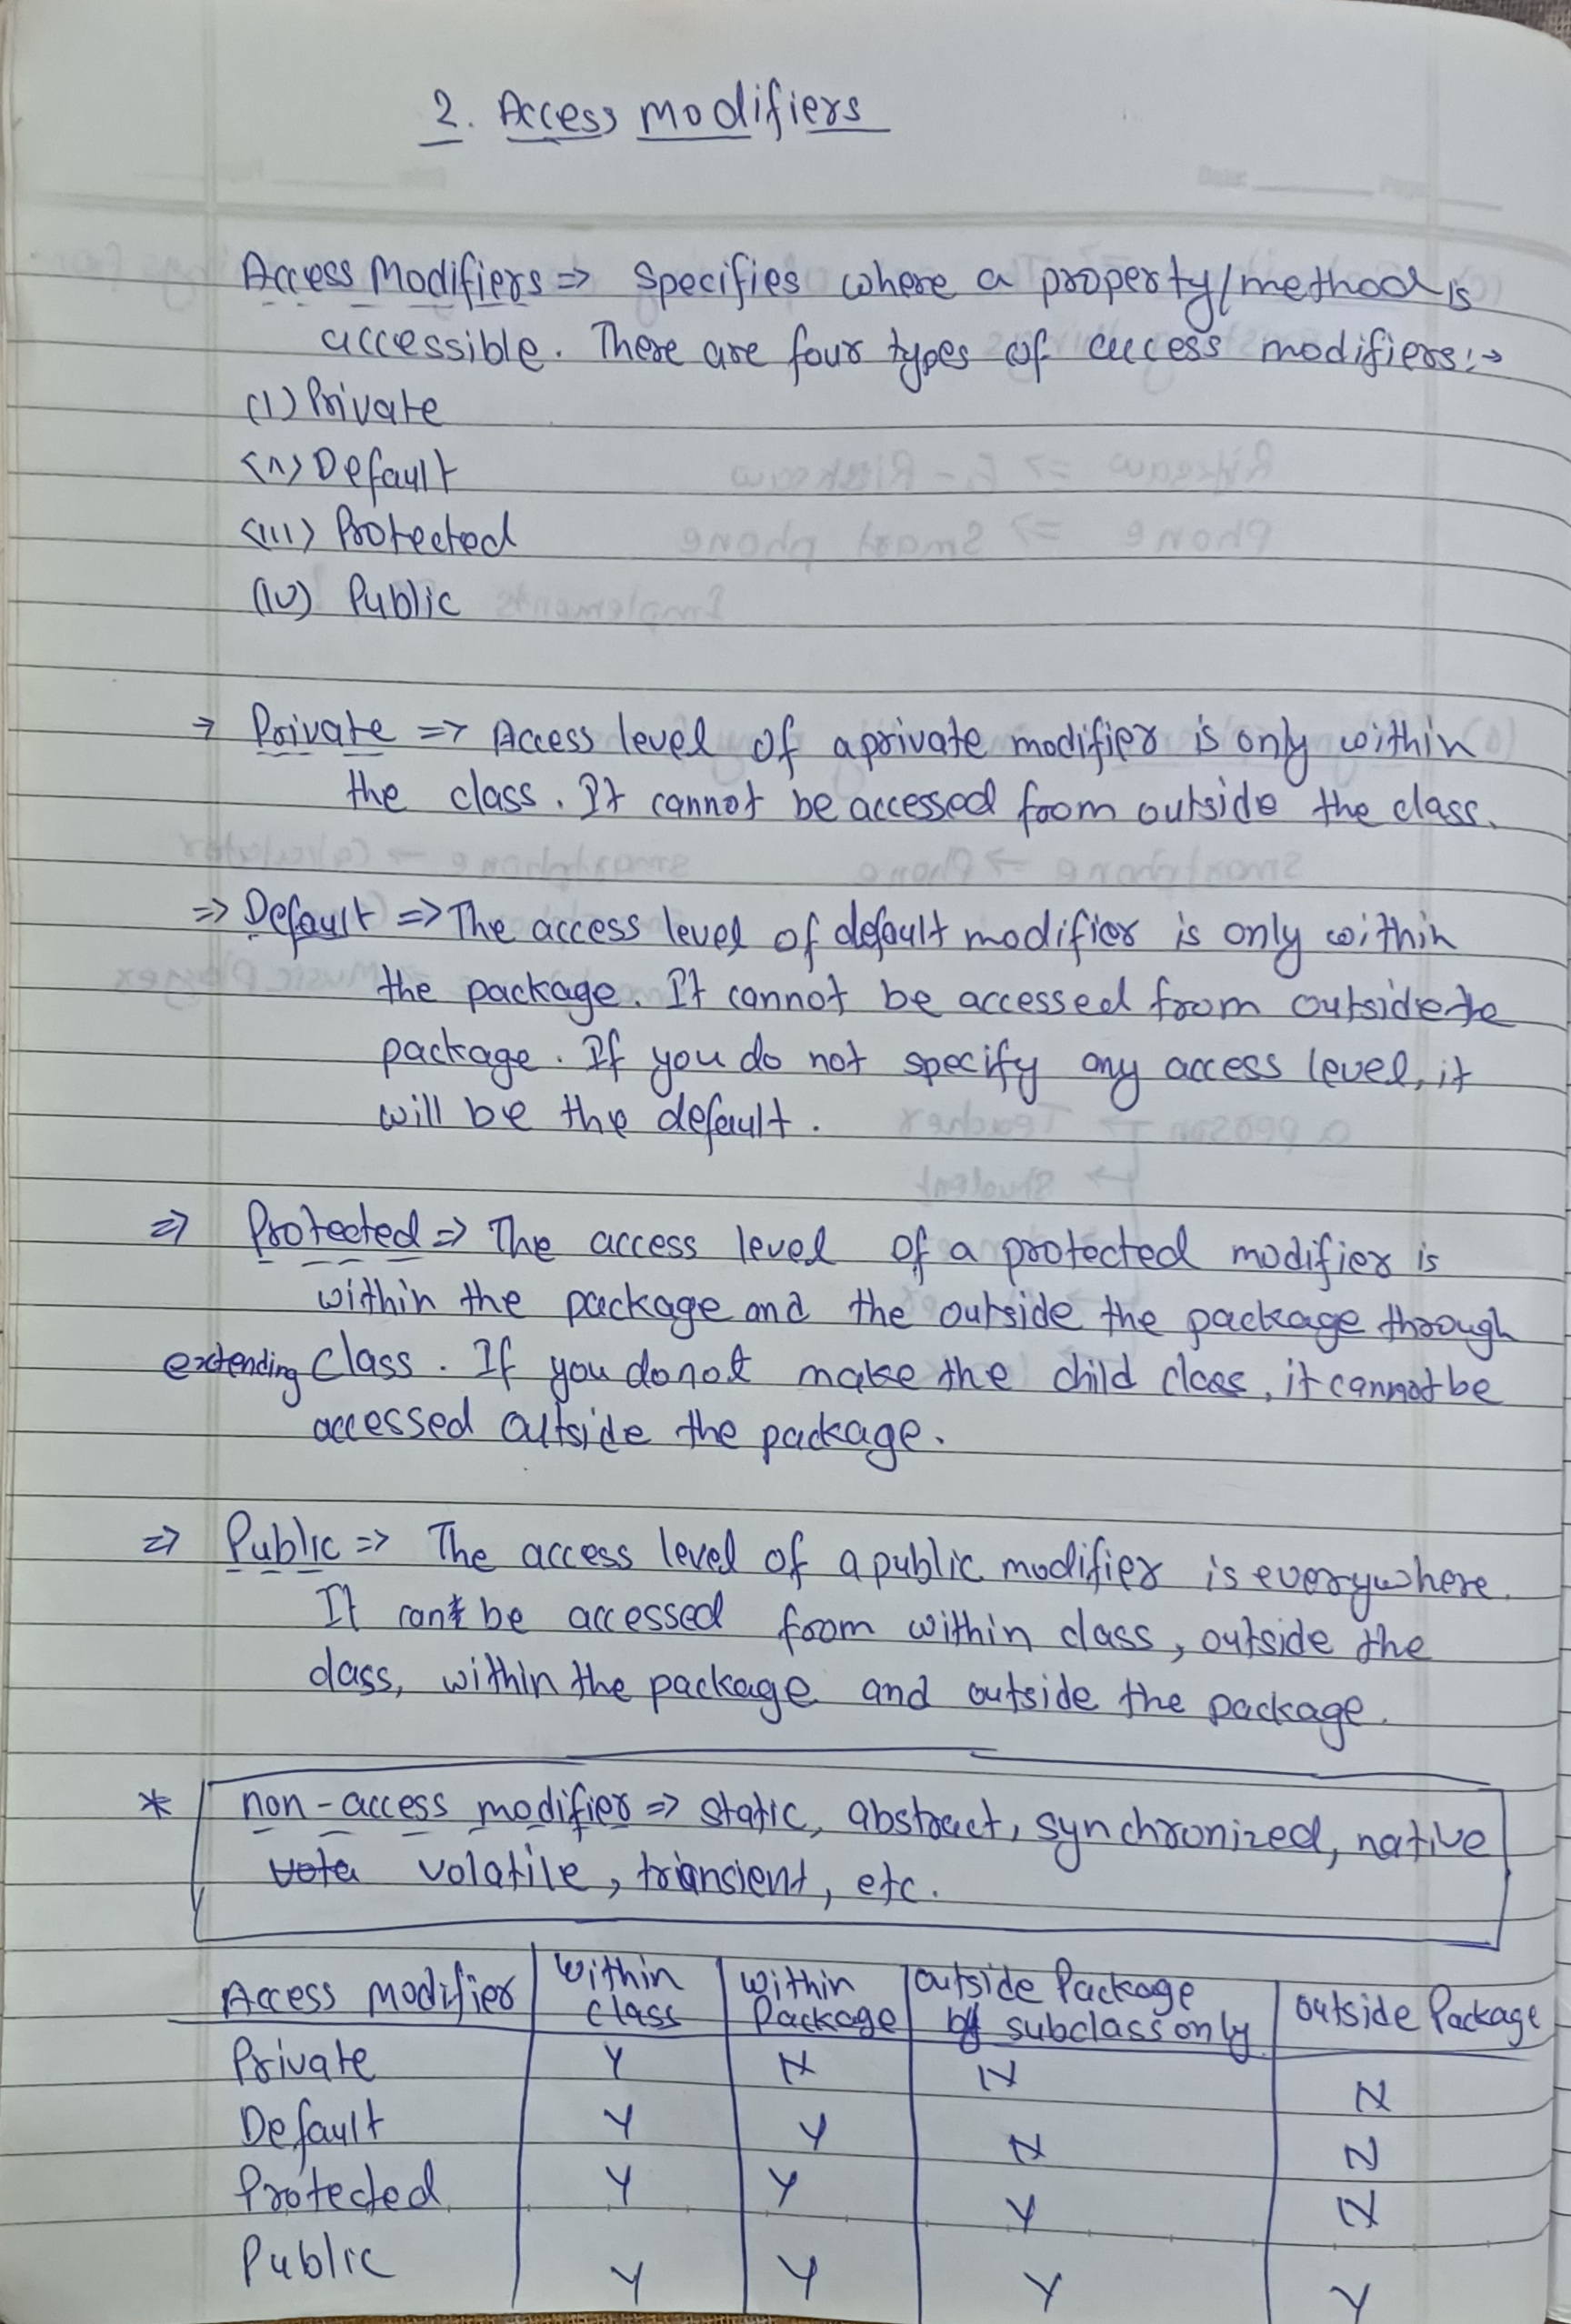 2. Access modifiers
Access Modifiers => Specifies where a property/method is
accessible. There are four types of access modifiers:→
(I) Private
(II) Default
(III) Protected
(IV) Public
→ Private => Access level of a private modifier is only within
the class. It cannot be accessed from outside the class.
=> Default => The access level of default modifier is only within
the package. It cannot be accessed from outside the
package. If you do not specify any access level, it
will be the default.
=> Protected => The access level of a protected modifier is
within the package and the outside the package through
extending class. If you do not make the child class, it cannot be
accessed outside the package.
=> Public => The access level of a public modifier is everywhere.
It can be accessed from within class, outside the
class, within the package and outside the package.
* non-access modifier => static, abstract, synchronized, native
volatile, transient, etc.
Access modifier | within class | within Package | outside Package by subclass only | outside Package
Private Y N N N
Default Y Y N N
Protected Y Y Y N
Public Y Y Y Y